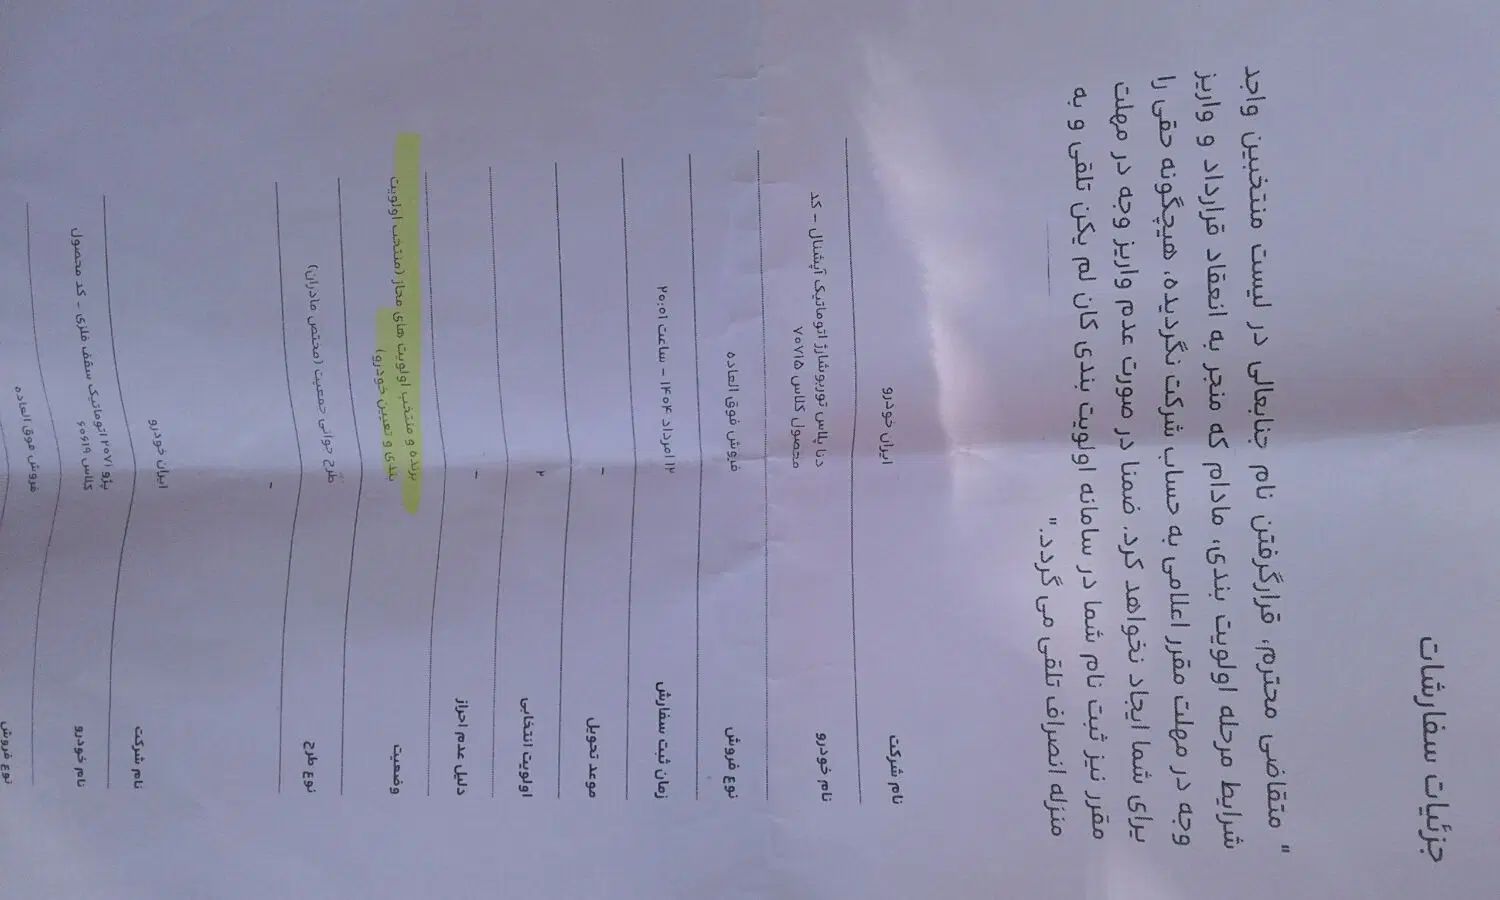 جزئیات سفارشات
" متقاضی محترم، قرارگرفتن نام جنابعالی در لیست منتخبین واجد
شرایط مرحله اولویت بندی، مادام که منجر به انعقاد قرارداد و واریز
وجه در مهلت مقرر اعلامی به حساب شرکت نگردیده، هیچگونه حقی را
برای شما ایجاد نخواهد کرد. ضمنا در صورت عدم واریز وجه در مهلت
مقرر نیز ثبت نام شما در سامانه اولویت بندی کان لم یکن تلقی و به
منزله انصراف تلقی می گردد."
نام شرکت ایران خودرو
نام خودرو دنا پلاس توربوشارژ اتوماتیک آپشنال - کد
محصول کلاس ۷۰۷۱۵
نوع فروش فروش فوق العاده
زمان ثبت سفارش ۱۲ امرداد ۱۴۰۴ - ساعت ۲۰:۰۱
موعد تحویل -
اولویت انتخابی ۲
دلیل عدم احراز -
وضعیت برنده و منتخب اولویت های مجاز (منتخب اولویت
بندی و تعیین خودرو)
نوع طرح طرح جوانی جمعیت (مختص مادران)
-
نام شرکت ایران خودرو
نام خودرو پژو ۲۰۷۱ اتوماتیک سقف فلزی - کد محصول
کلاس ۶۰۶۱۹
نوع فروش فروش فوق العاده